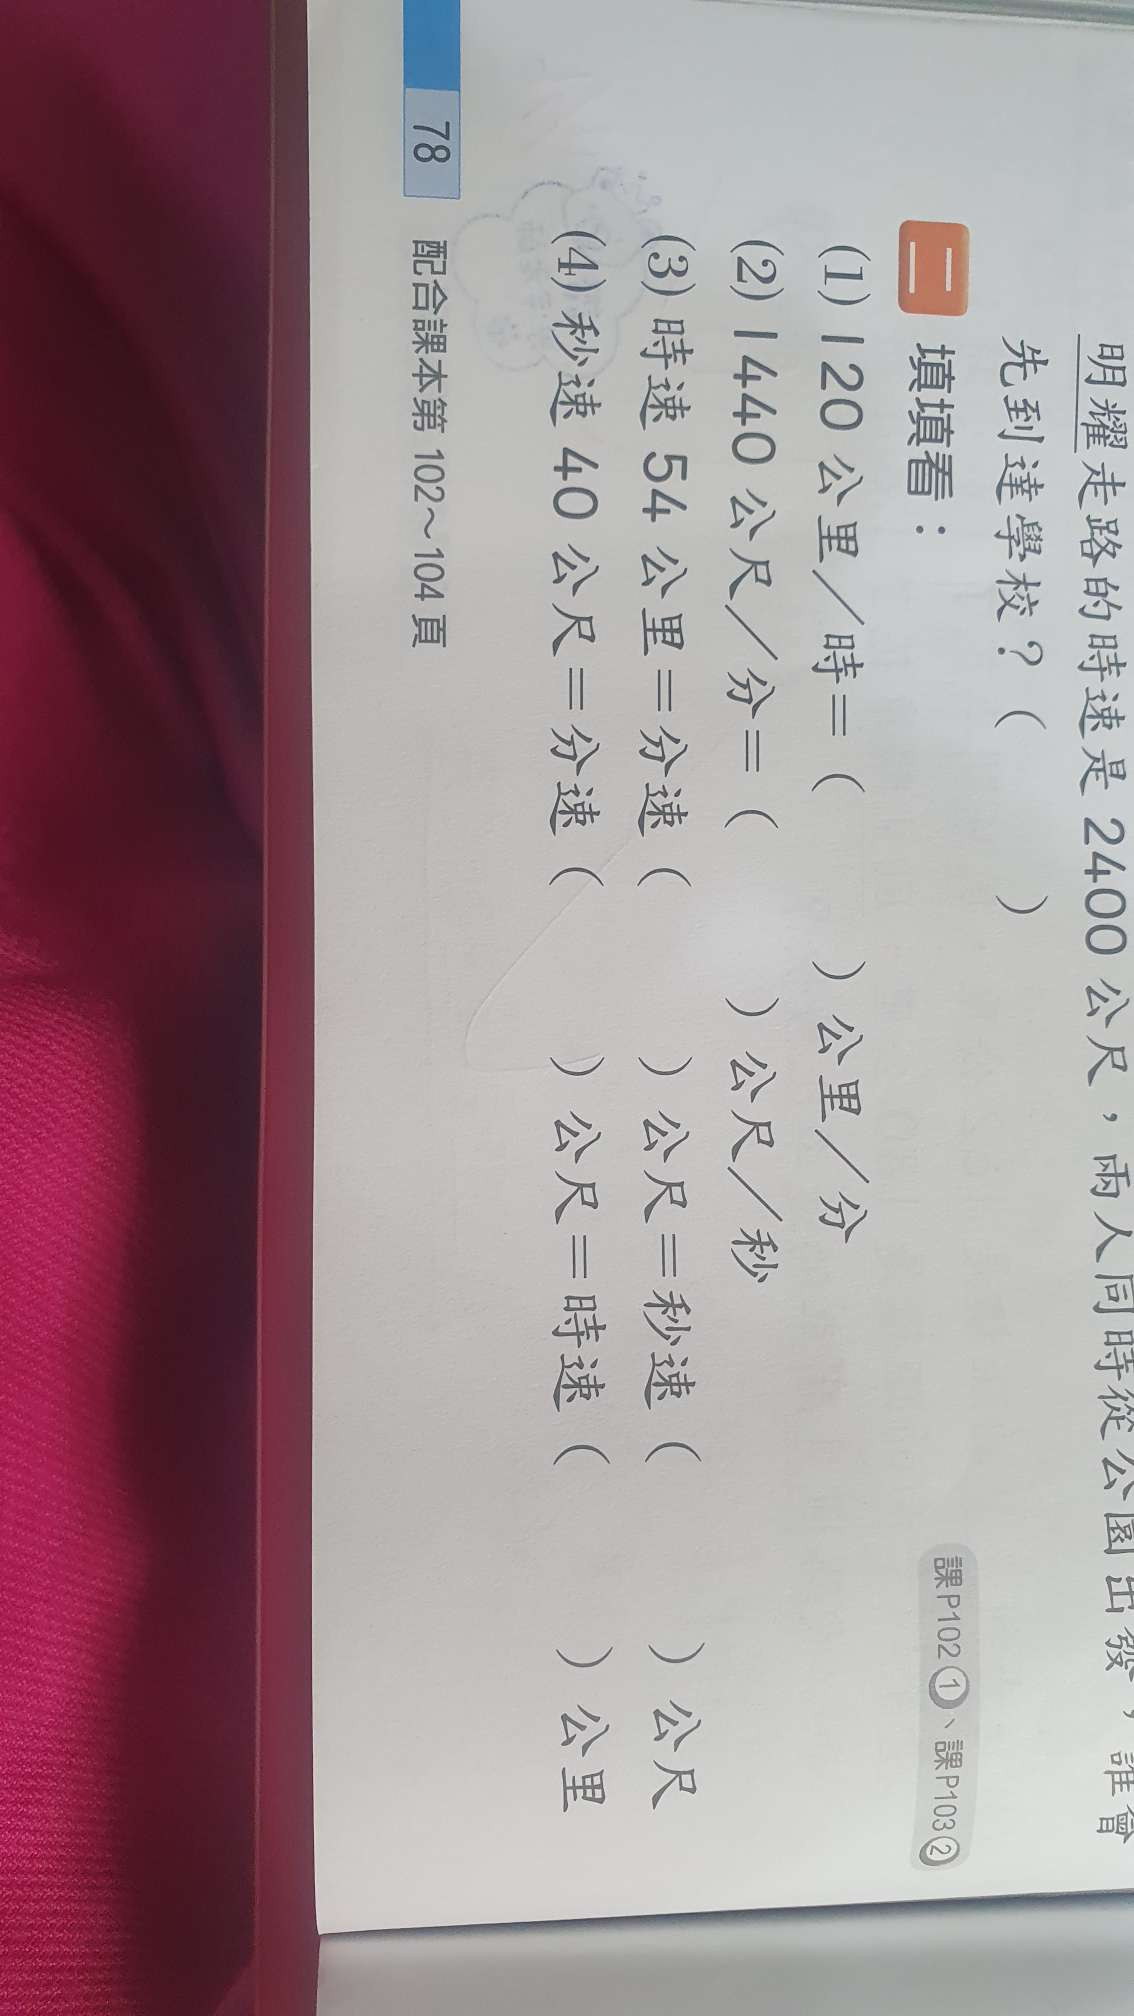 明耀走路的時速是 2400 公尺，兩人同時從公園出發，誰會
先到達學校？（　　）
二 填填看： 課P102①、課P103②
(1) 120 公里／時＝（　　）公里／分
(2) 1440 公尺／分＝（　　）公尺／秒
(3) 時速 54 公里＝分速（　　）公尺＝秒速（　　）公尺
(4) 秒速 40 公尺＝分速（　　）公尺＝時速（　　）公里
78 配合課本第 102～104 頁